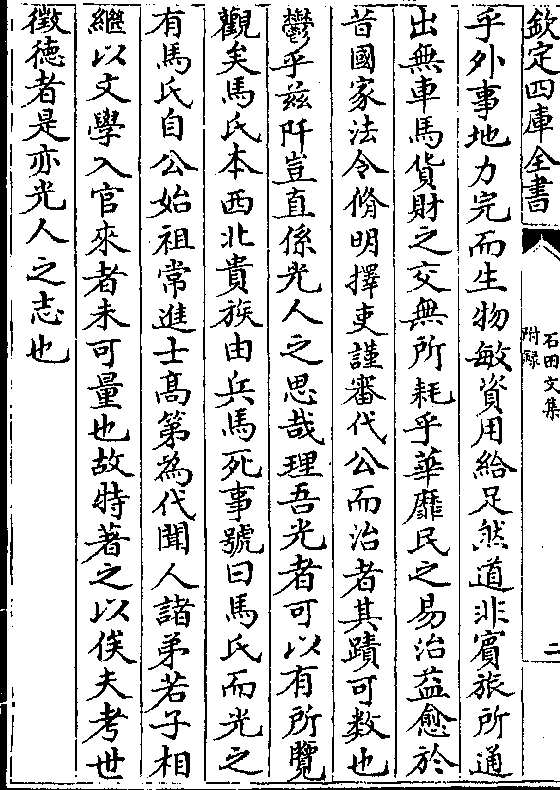 欽定四庫全書
石田文集
附録
二
乎外事地力完而生物敏資用給足然道非賓旅所通
出無車馬貨財之交無所耗乎華靡民之易治益愈於
昔國家法令脩明擇吏謹審代公而治者其蹟可数也
鬱乎兹阡豈直係光人之思哉理吾光者可以有所覽
觀矣馬氏本西北貴族由兵馬死事號曰馬氏而光之
有馬氏自公始祖常進士髙第為代聞人諸弟若子相
繼以文學入官來者未可量也故特著之以俟夫考世
徵徳者是亦光人之志也